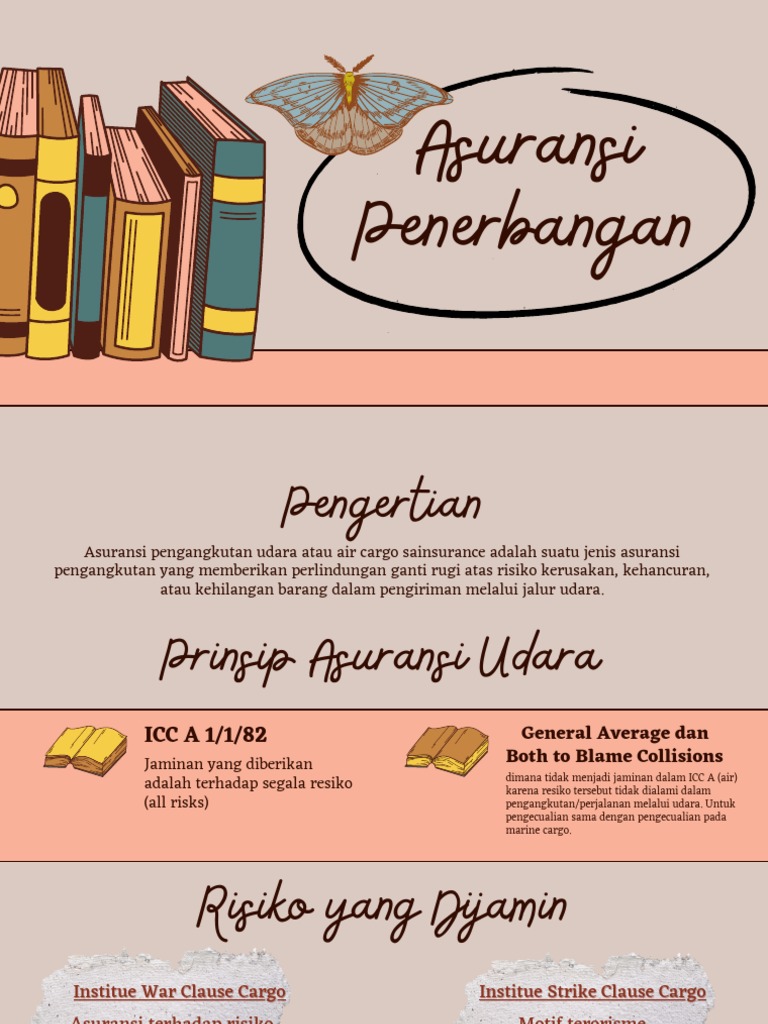 Asuransi
Penerbangan
Pengertian
Asuransi pengangkutan udara atau air cargo sainsurance adalah suatu jenis asuransi
pengangkutan yang memberikan perlindungan ganti rugi atas risiko kerusakan, kehancuran,
atau kehilangan barang dalam pengiriman melalui jalur udara.
Prinsip Asuransi Udara
ICC A 1/1/82
Jaminan yang diberikan
adalah terhadap segala resiko
(all risks)
General Average dan
Both to Blame Collisions
dimana tidak menjadi jaminan dalam ICC A (air)
karena resiko tersebut tidak dialami dalam
pengangkutan/perjalanan melalui udara. Untuk
pengecualian sama dengan pengecualian pada
marine cargo.
Risiko yang Dijamin
Institue War Clause Cargo
Asuransi terhadap risiko
Institue Strike Clause Cargo
Motif terorisme